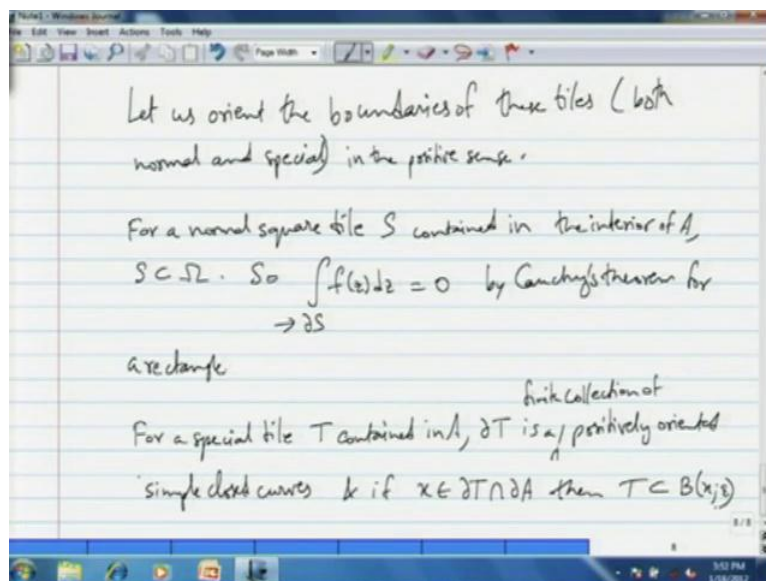 Note1 - Windows Journal
File Edit View Insert Actions Tools Help
Page Width
Let us orient the boundaries of these tiles (both
normal and special) in the positive sense.
For a normal square tile S contained in the interior of A,
S ⊂ Ω. So ∫f(z)dz = 0 by Cauchy's theorem for
→ ∂S
a rectangle
finite collection of
For a special tile T contained in A, ∂T is a positively oriented
simple closed curves & if x ∈ ∂T ∩ ∂A then T ⊂ B(x;ε)
8/8
8
3:52 PM